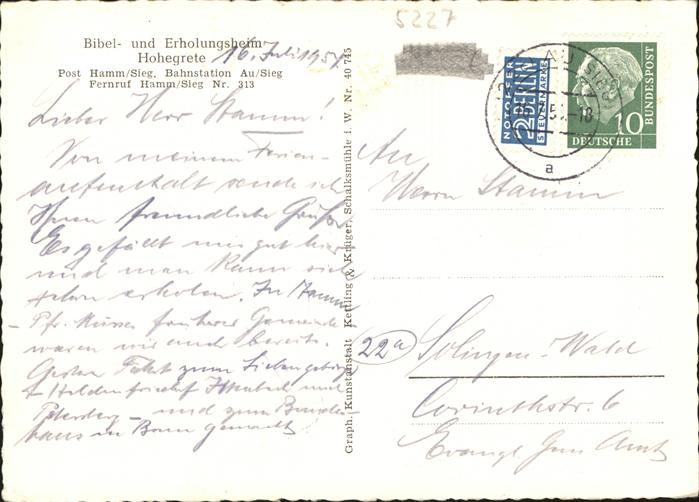 5227
Bibel- und Erholungsheim
Hohegrete
16. Juli 195
Post Hamm/Sieg, Bahnstation Au/Sieg
Fernruf Hamm/Sieg Nr. 313
Lieber Herr Stamm!
Von meinem Ferien-
aufenthalt sende ich
Ihnen freundliche Grüße.
Es gefällt mir gut hier
und man kann sich
erholen. In Hamm
- Pfr. früherer Gemeinde
waren wir auch bereits.
Gestern Fahrt zum Siebengebirge
+ Heldenfriedhof und
Petersberg - und zum Bundes-
haus in Bonn gemacht
Graph. Kunstanstalt Kettling & Krüger, Schalksmühle i. W. Nr. 40 745
NOTOPFER
2 BERLIN
STEUERMARKE
AU (SIEG)
-18
a
10
DEUTSCHE
BUNDESPOST
An
Herrn Stamm
22a Solingen-Wald
Corinthstr. 6
Evangl. Gem. Amt